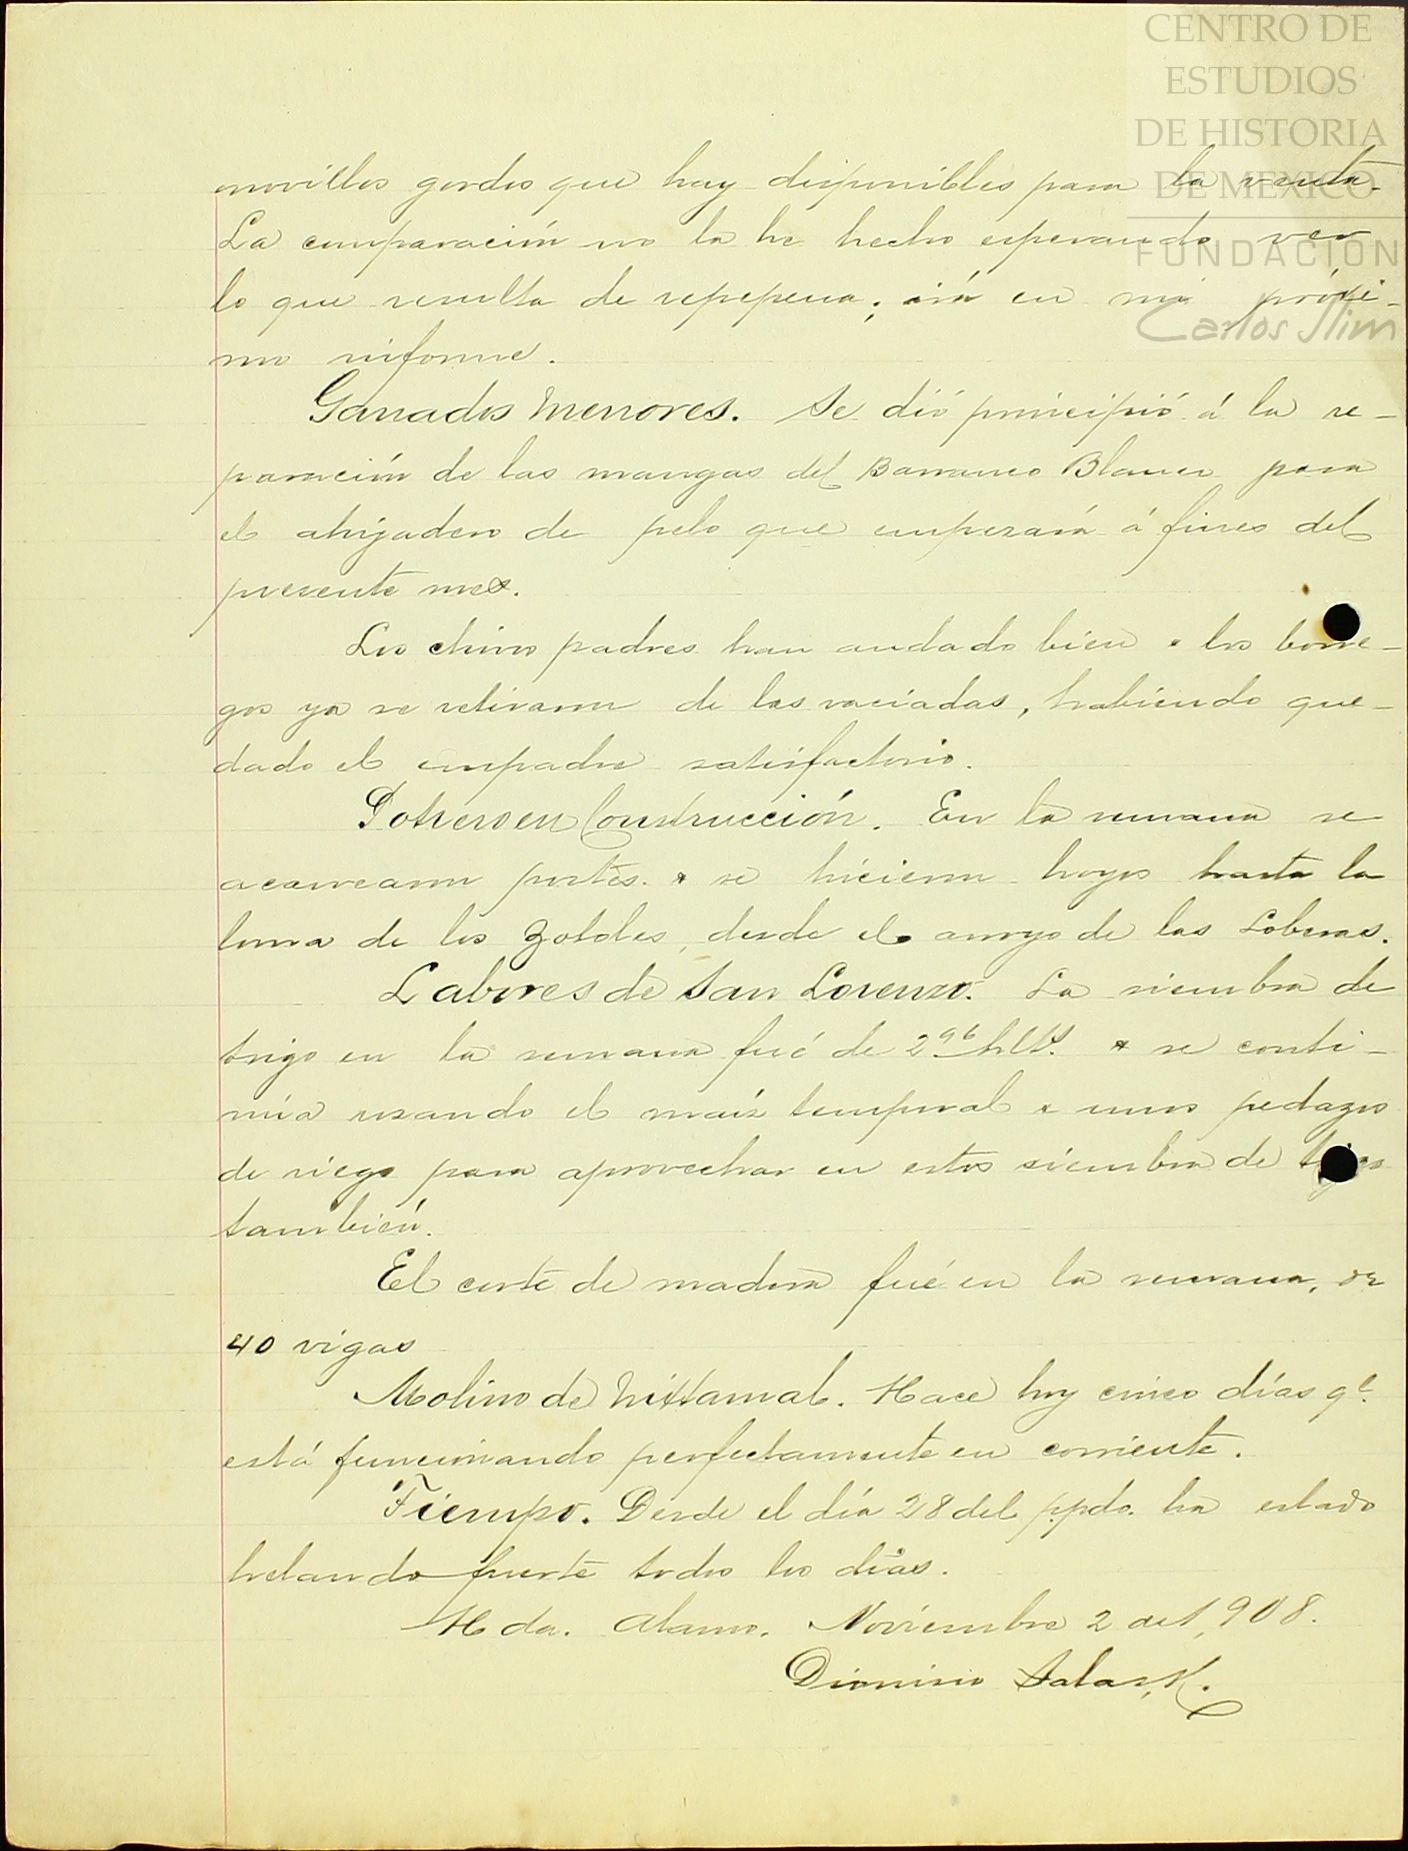 CENTRO DE
ESTUDIOS
DE HISTORIA
DE MEXICO
FUNDACIÓN
Carlos Slim
novillos gordos que hay disponibles para la venta.
La comparación no la he hecho esperando ver
lo que resulta de repepena; irá en mi próxi-
mo informe.
Ganados Menores. Se dió principió á la re-
paración de las mangas del Barranco Blanco para
el ahijadero de pelo que empezará á fines del
presente mes.
Los chivos padres han andado bien & los borre-
gos ya se retiraron de las vaciadas, habiendo que-
dado el empadre satisfactorio.
Potrero en Construcción. En la semana se
acarrearon postes & se hicieron hoyos hasta la
loma de los Zotoles, desde el arroyo de las Loberas.
Labores de San Lorenzo. La siembra de
trigo en la semana fué de 2 96 hlts. & se conti-
núa rozando el maíz temporal & unos pedazos
de riego para aprovechar en estos siembra de trigo
también.
El corte de madera fué en la semana, de
40 vigas
Molino de Nixtamal. Hace hoy cinco días qe.
está funcionando perfectamente en corriente.
Tiempo. Desde el día 28 del ppdo. ha estado
helando fuerte todos los días.
Hda. Alamo. Noviembre 2 de 1,908.
Dionisio Salas, K.